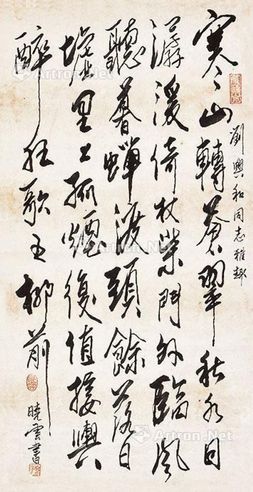 劉興和同志雅
寒山轉蒼翠秋水日
潺湲倚杖柴門外臨風
聽暮蟬渡頭餘落日
墟里上孤煙復值接輿
醉狂歌五柳前
曉雲書
Artron.Net